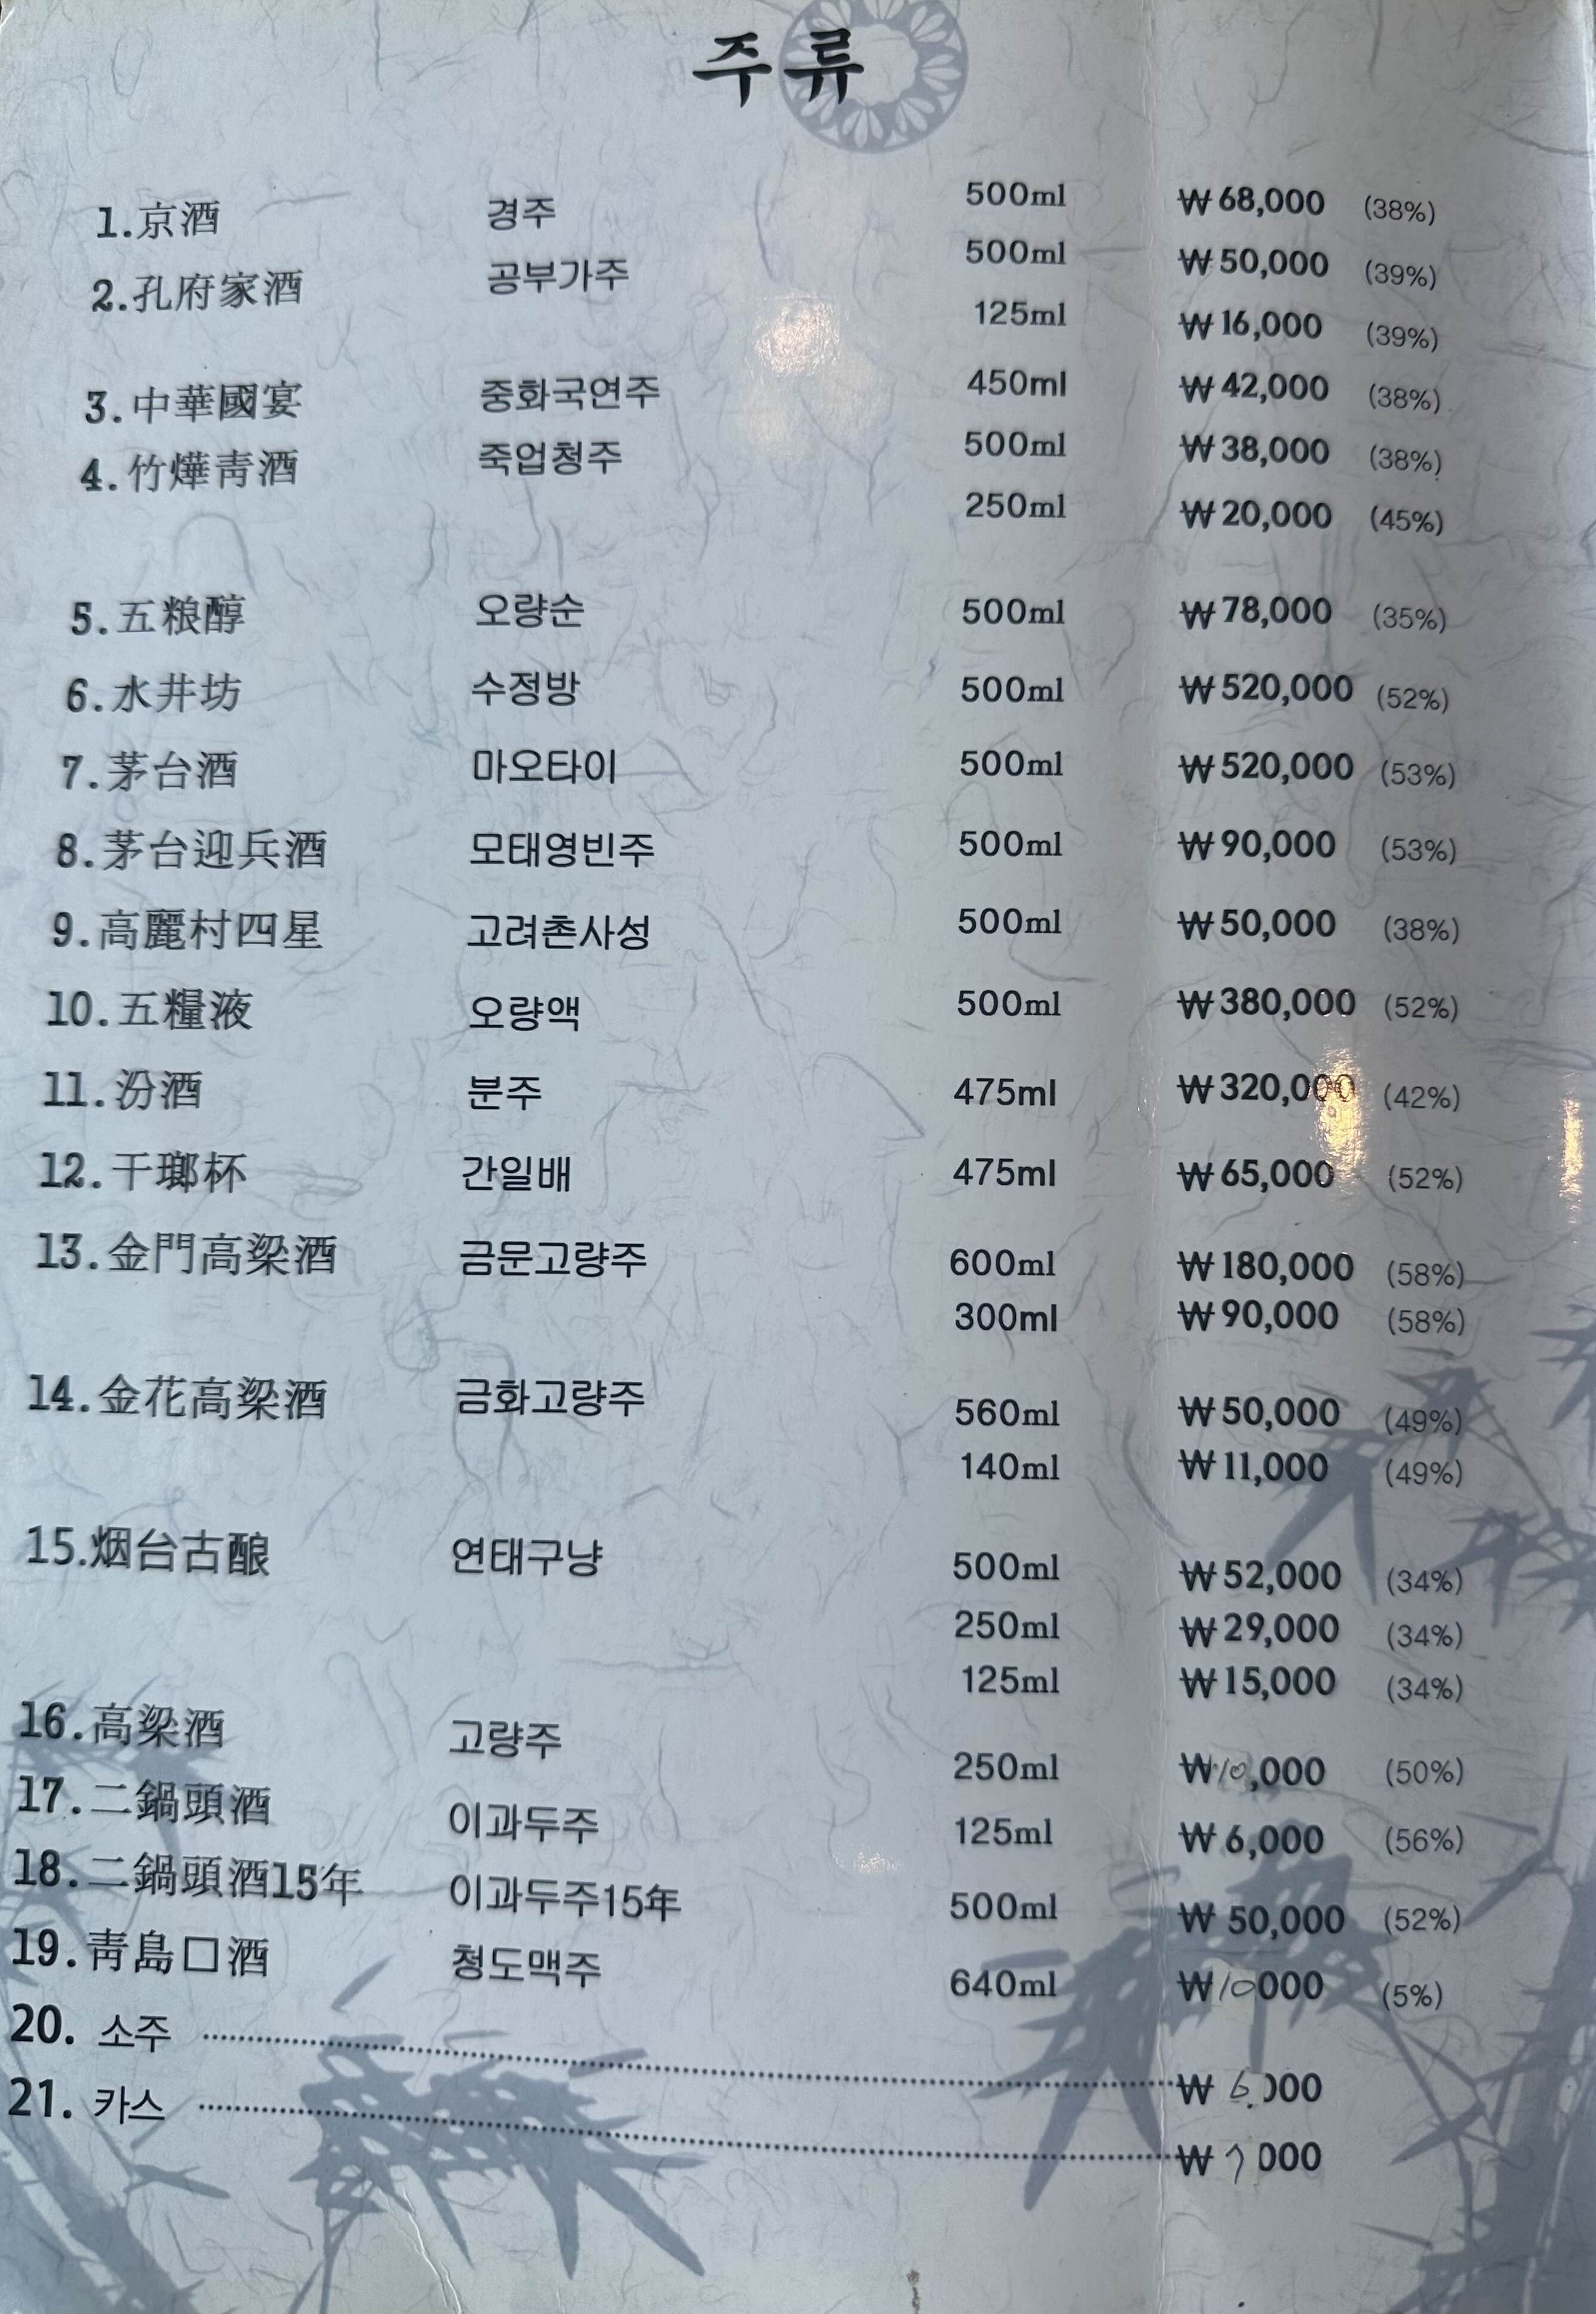 주류
1.京酒 경주 500ml ₩68,000 (38%)
2.孔府家酒 공부가주 500ml ₩50,000 (39%)
125ml ₩16,000 (39%)
3.中華國宴 중화국연주 450ml ₩42,000 (38%)
4.竹燁靑酒 죽업청주 500ml ₩38,000 (38%)
250ml ₩20,000 (45%)
5.五粮醇 오량순 500ml ₩78,000 (35%)
6.水井坊 수정방 500ml ₩520,000 (52%)
7.茅台酒 마오타이 500ml ₩520,000 (53%)
8.茅台迎兵酒 모태영빈주 500ml ₩90,000 (53%)
9.高麗村四星 고려촌사성 500ml ₩50,000 (38%)
10.五糧液 오량액 500ml ₩380,000 (52%)
11.汾酒 분주 475ml ₩320,000 (42%)
12.干瑯杯 간일배 475ml ₩65,000 (52%)
13.金門高梁酒 금문고량주 600ml ₩180,000 (58%)
300ml ₩90,000 (58%)
14.金花高梁酒 금화고량주 560ml ₩50,000 (49%)
140ml ₩11,000 (49%)
15.烟台古酿 연태구냥 500ml ₩52,000 (34%)
250ml ₩29,000 (34%)
125ml ₩15,000 (34%)
16.高梁酒 고량주 250ml ₩10,000 (50%)
17.二鍋頭酒 이과두주 125ml ₩6,000 (56%)
18.二鍋頭酒15年 이과두주15年 500ml ₩50,000 (52%)
19.靑島口酒 청도맥주 640ml ₩10000 (5%)
20. 소주 ₩6,000
21. 카스 ₩7000